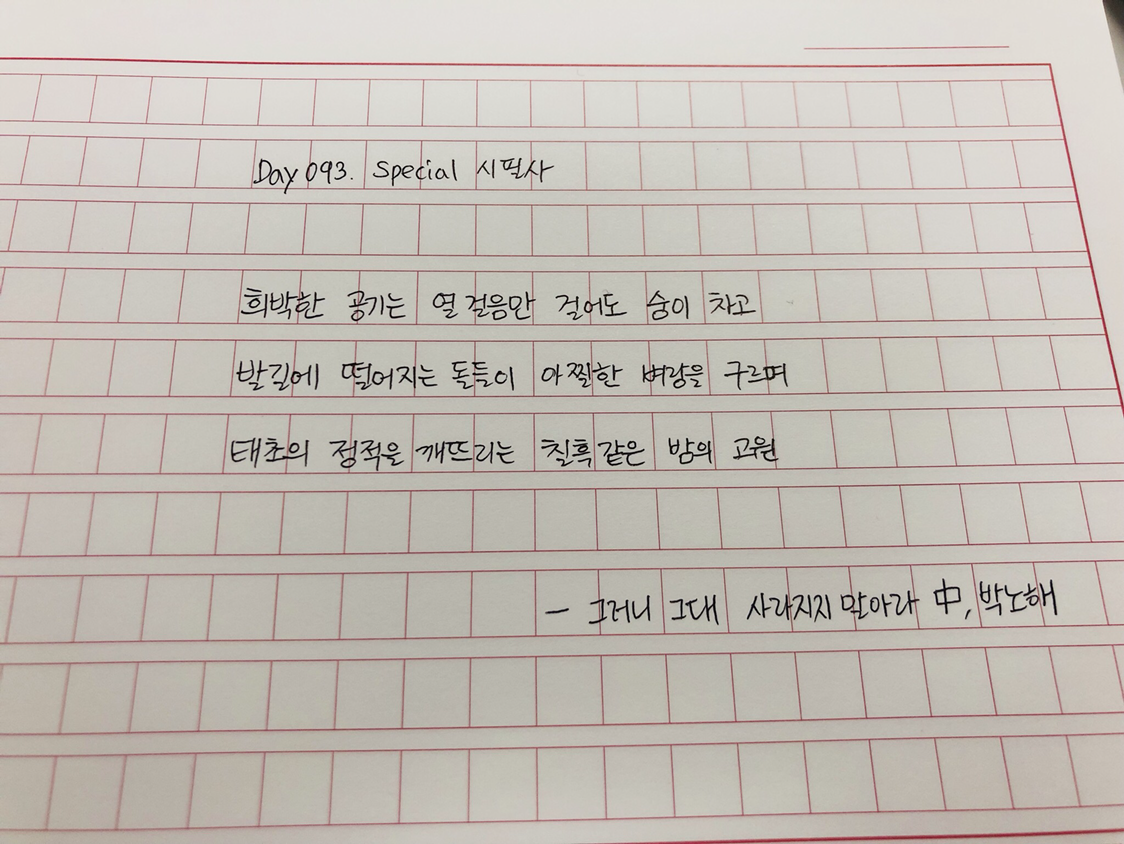 Day 093. Special 시필사
희박한 공기는 열 걸음만 걸어도 숨이 차고
발길에 떨어지는 돌들이 아찔한 벼랑을 구르며
태초의 정적을 깨뜨리는 칠흑 같은 밤의 고원
- 그러니 그대 사라지지 말아라 中, 박노해